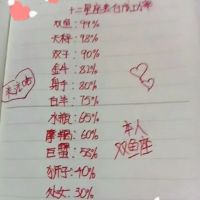 十二星座表白成功率
双鱼:99%
天秤:98%
双子:90%
金牛:83%
射手:80%
白羊:75%
水瓶:65%
摩羯:60%
巨蟹:58%
狮子:40%
处女:30%
本人
双鱼座